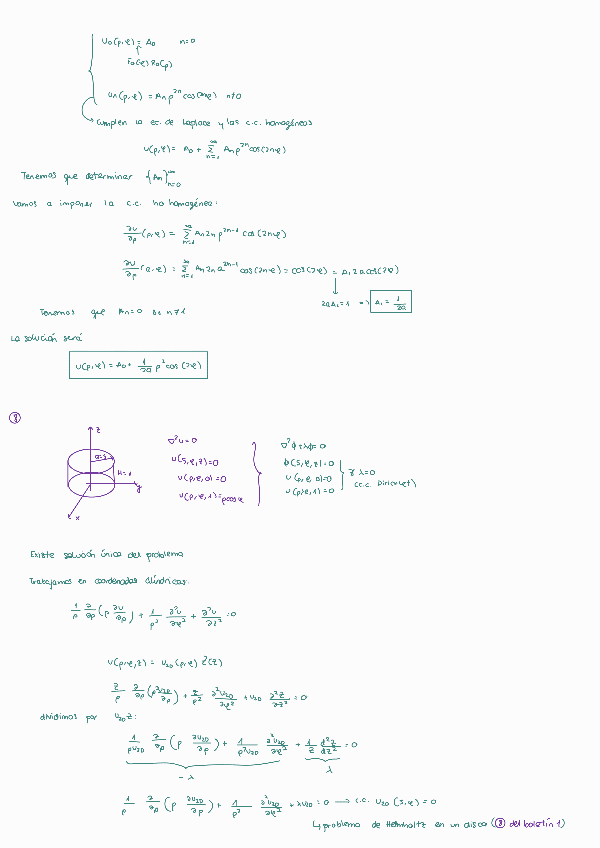 U₀(ρ,φ) = A₀   n=0
F₀(φ) R₀(ρ)
Un(ρ,φ) = An ρ²ⁿ cos(2nφ)   n≠0
Cumplen la ec. de Laplace y las c.c. homogéneas
u(ρ,φ) = A₀ + Σ_{n=1}^∞ An ρ²ⁿ cos(2nφ)
Tenemos que determinar {An}_{n=0}^∞
Vamos a imponer la c.c. no homogénea:
∂u/∂ρ (ρ,φ) = Σ_{n=1}^∞ An 2n ρ²ⁿ⁻¹ cos(2nφ)
∂u/∂ρ (a,φ) = Σ_{n=1}^∞ An 2n a²ⁿ⁻¹ cos(2nφ) = cos(2φ) = A₁ 2a cos(2φ)
2aA₁=1 => A₁ = 1/2a
Tenemos que An=0 si n≠1
La solución será
u(ρ,φ) = A₀ + 1/2a ρ² cos(2φ)
8
z
a=3
H=1
y
x
∇²u=0
u(3,φ,z)=0
u(ρ,φ,0)=0
u(ρ,φ,1)=ρcosφ
∇²φ+λφ=0
φ(3,φ,z)=0
u(ρ,φ,0)=0
u(ρ,φ,1)=0
∄ λ=0
(c.c. Dirichlet)
Existe solución única del problema
Trabajamos en coordenadas cilíndricas:
1/ρ ∂/∂ρ (ρ ∂u/∂ρ) + 1/ρ² ∂²u/∂φ² + ∂²u/∂z² = 0
u(ρ,φ,z) = u₂D(ρ,φ) Z(z)
Z/ρ ∂/∂ρ (ρ ∂u₂D/∂ρ) + Z/ρ² ∂²u₂D/∂φ² + u₂D ∂²Z/∂z² = 0
dividimos por u₂D Z:
1/ρu₂D ∂/∂ρ (ρ ∂u₂D/∂ρ) + 1/ρ²u₂D ∂²u₂D/∂φ² + 1/Z d²Z/dz² = 0
-λ   λ
1/ρ ∂/∂ρ (ρ ∂u₂D/∂ρ) + 1/ρ² ∂²u₂D/∂φ² + λu₂D = 0 → c.c. u₂D(3,φ) = 0
↳ problema de Helmholtz en un disco (8 del boletín 1)